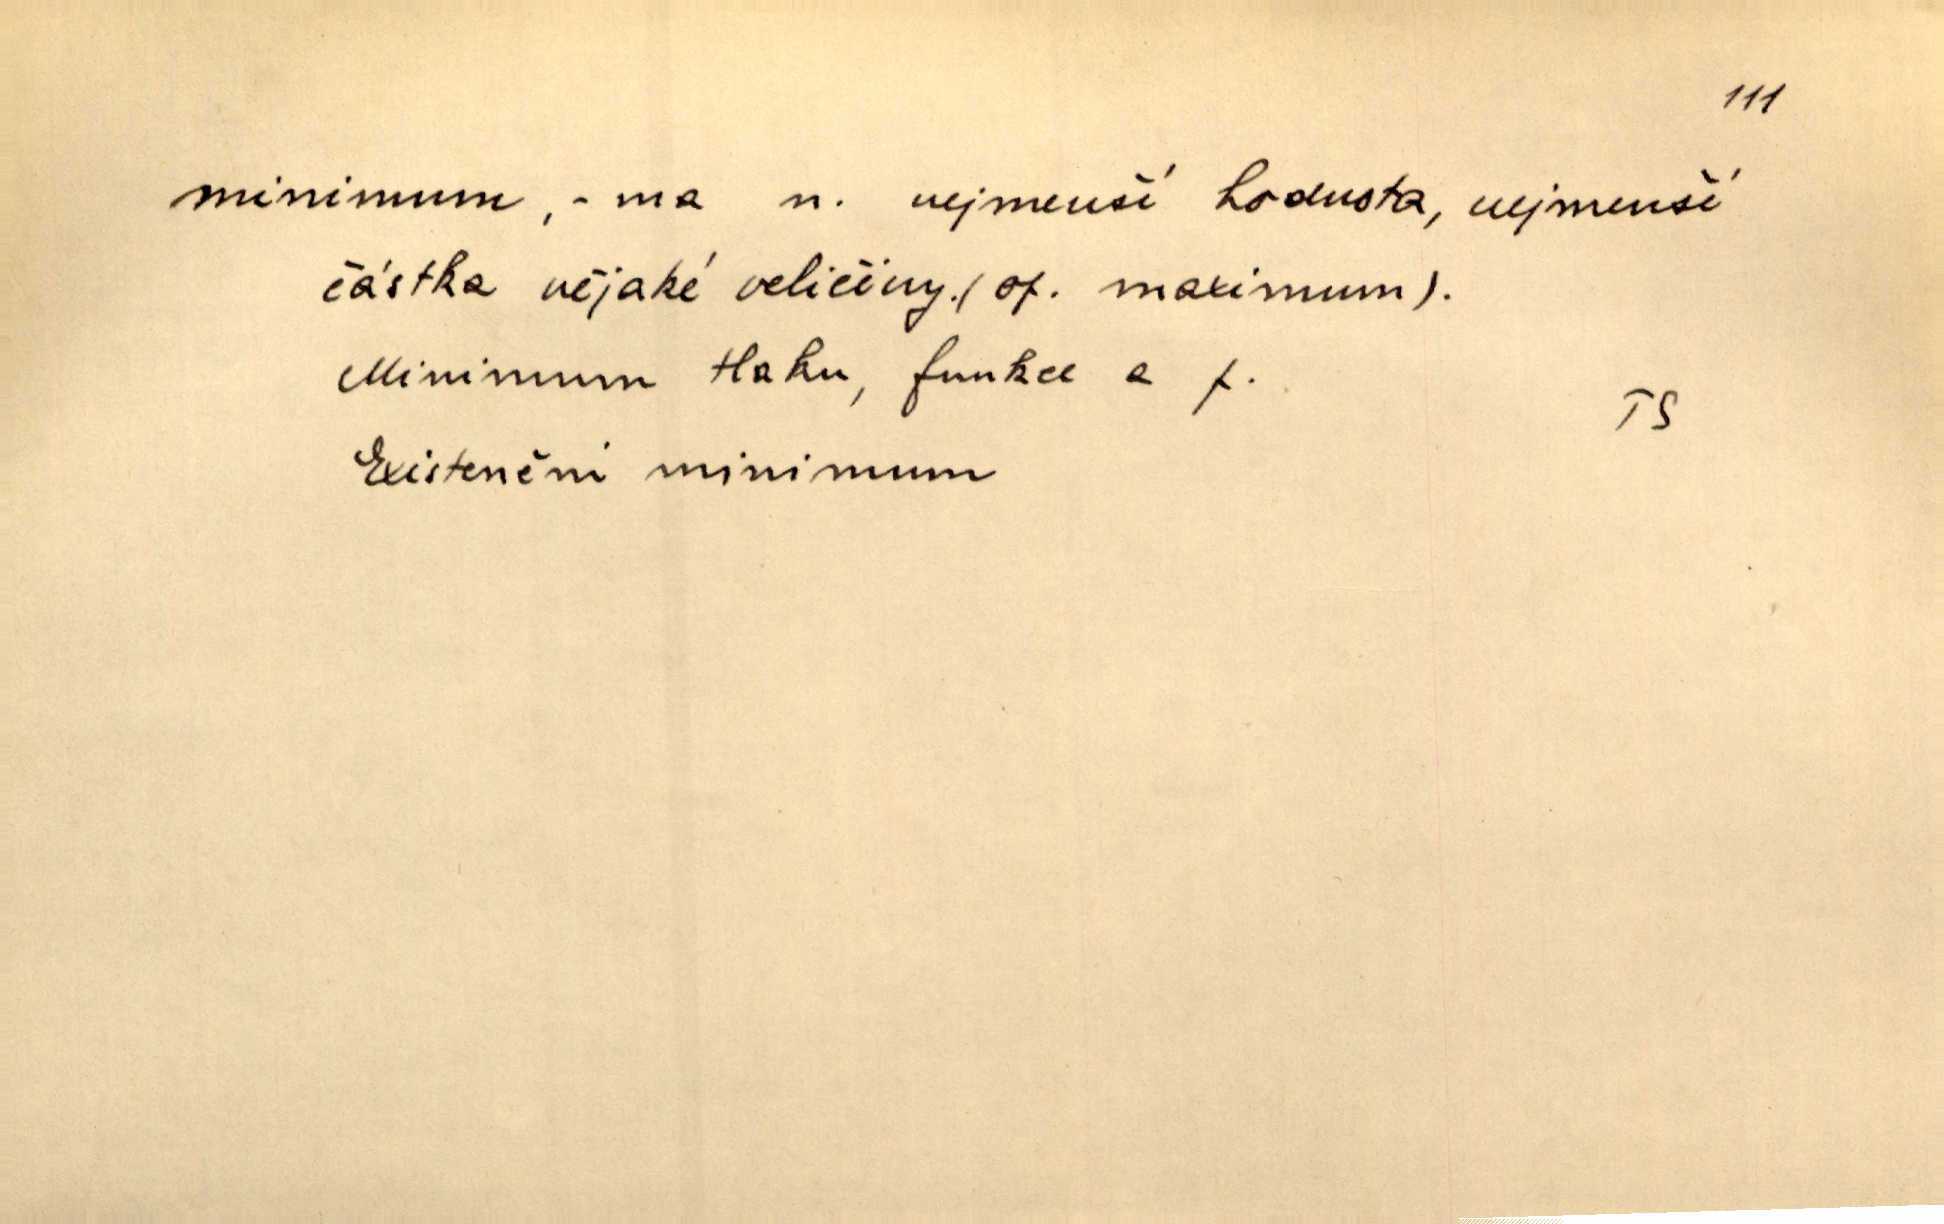 111
minimum, -ma n. nejmenší hodnota, nejmenší
částka nějaké veličiny. (op. maximum).
Minimum tlaku, funkce a p.
TS
Existenční minimum